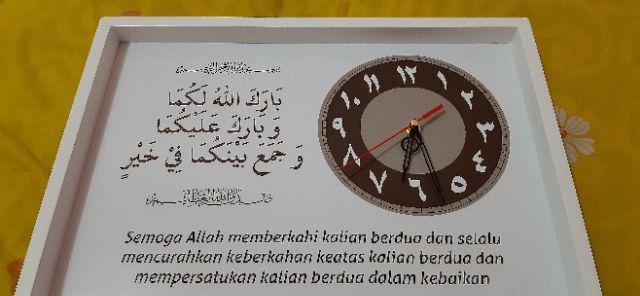 بَارَكَ اللهُ لَكُمَا
وَ بَارَكَ عَلَيْكُمَا
وَ جَمَعَ بَيْنَكُمَا فِيْ خَيْرٍ
١٢
١
٢
٣
٤
٥
٦
٧
٨
٩
١٠
١١
Semoga Allah memberkahi kalian berdua dan selalu
mencurahkan keberkahan keatas kalian berdua dan
mempersatukan kalian berdua dalam kebaikan